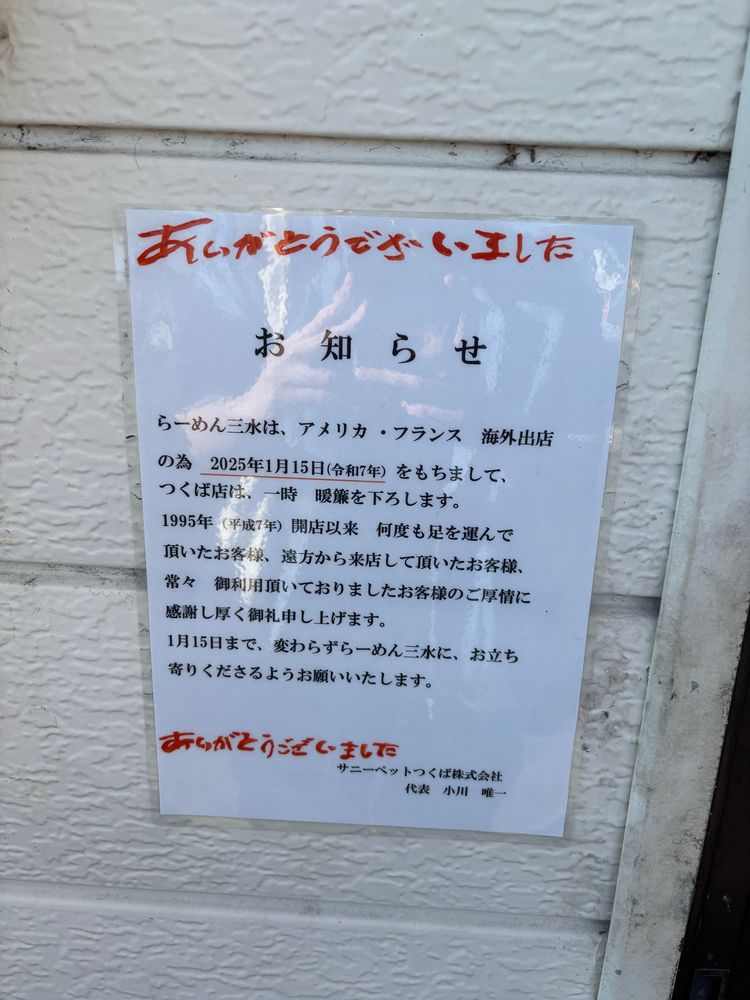 ありがとうございました
お知らせ
らーめん三水は、アメリカ・フランス　海外出店
の為　2025年1月15日(令和7年）をもちまして、
つくば店は、一時　暖簾を下ろします。
1995年（平成7年）開店以来　何度も足を運んで
頂いたお客様、遠方から来店して頂いたお客様、
常々　御利用頂いておりましたお客様のご厚情に
感謝し厚く御礼申し上げます。
1月15日まで、変わらずらーめん三水に、お立ち
寄りくださるようお願いいたします。
ありがとうございました
サニーペットつくば株式会社
代表　小川　唯一